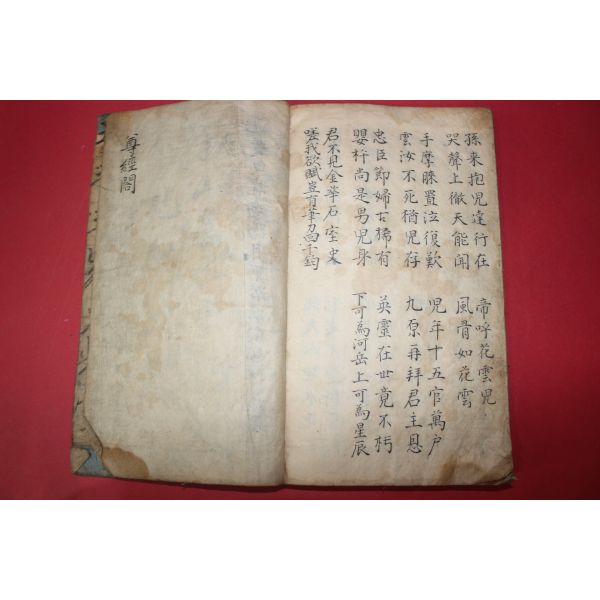 孫來抱兒達行在
哭聲上徹天能聞
帝呼花雲兒
風骨如花雲
手摩膝置泣復歎
雲汝不死猶兒存
兒年十五官萬戶
九原再拜君主恩
忠臣節婦古稀有
嬰杵尚是男兒身
英靈在世竟不朽
下可為河岳上可為星辰
君不見金華石室史
嗟我欲賦豈有筆力回千鈞
尊經閣